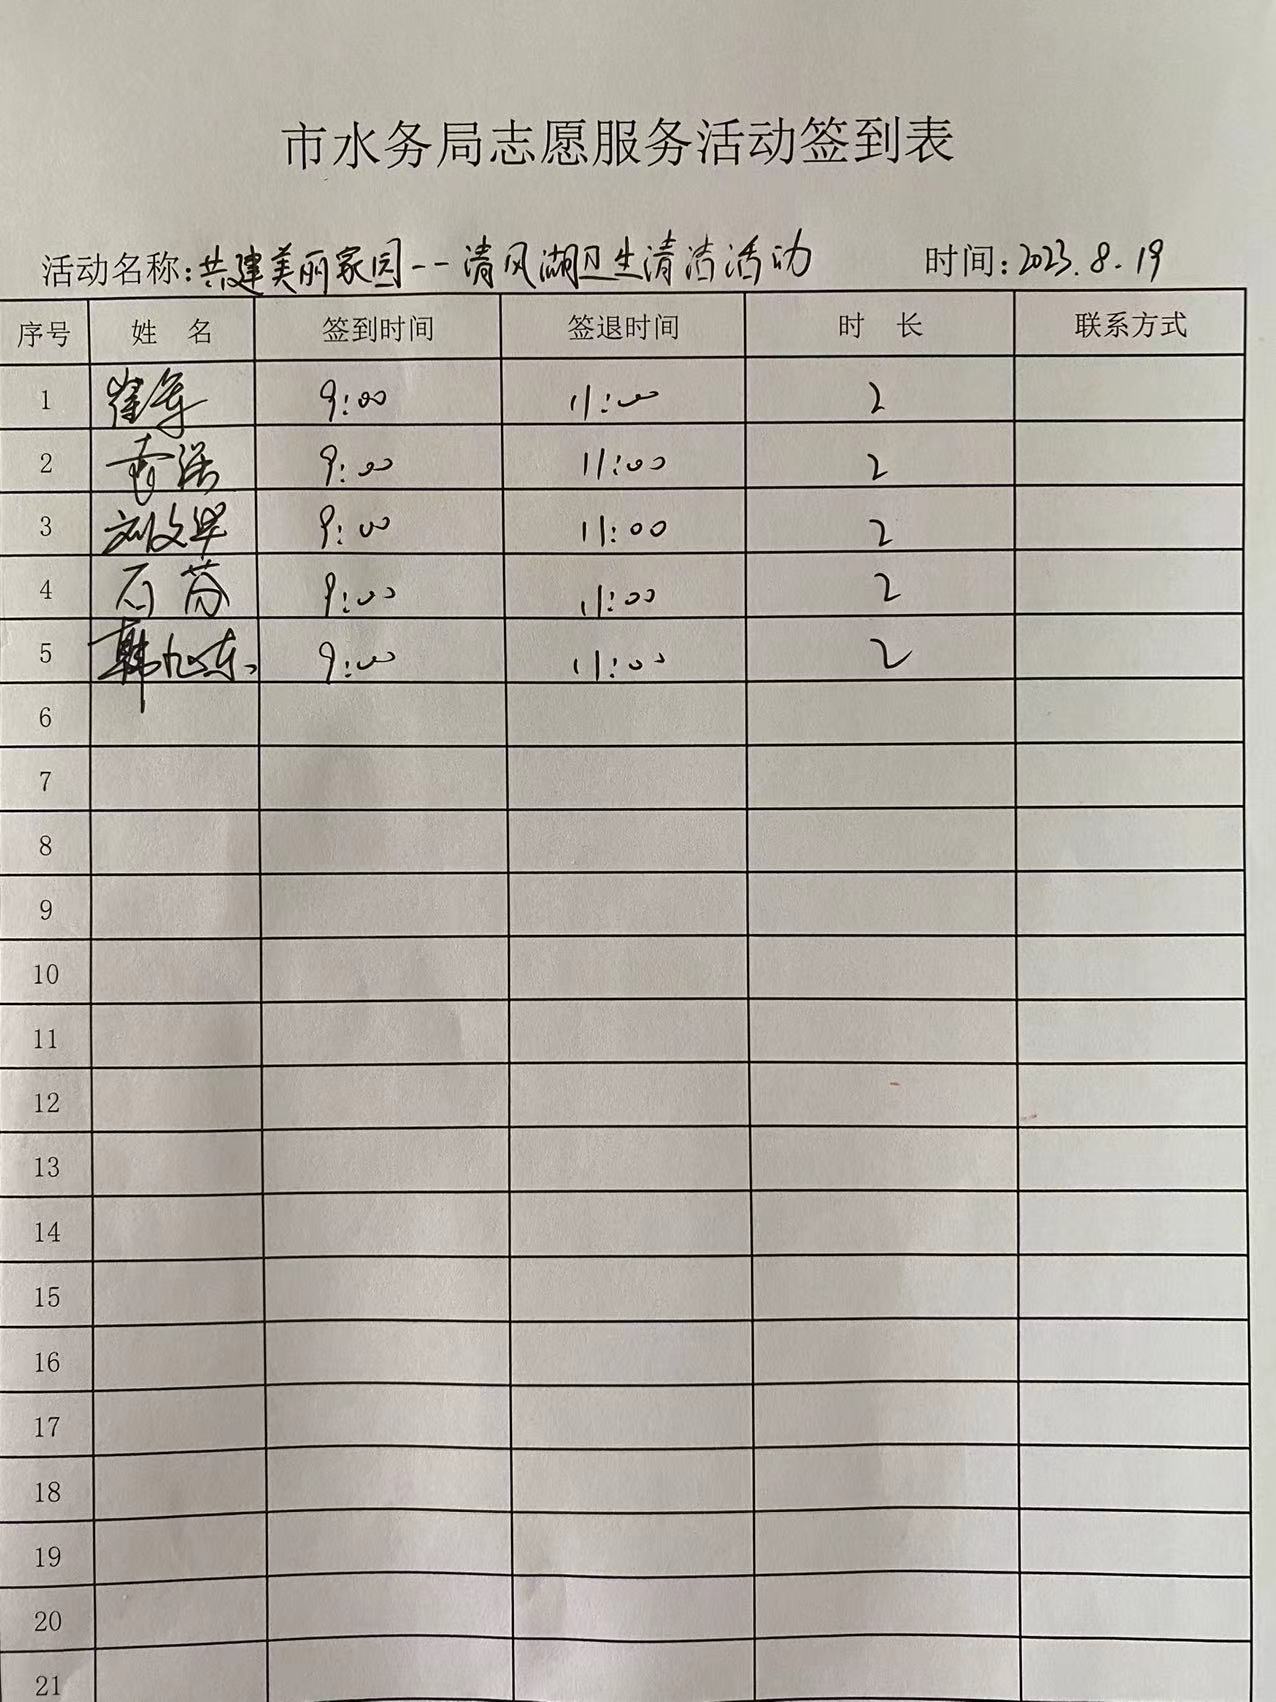 市水务局志愿服务活动签到表
活动名称:共建美丽家园--清风湖卫生清洁活动 时间:2023.8.19
序号 姓 名 签到时间 签退时间 时 长 联系方式
1 崔军 9:00 11:00 2
2 9:00 11:00 2
3 刘文华 9:00 11:00 2
4 石芬 9:00 11:00 2
5 韩旭东 9:00 11:00 2
6
7
8
9
10
11
12
13
14
15
16
17
18
19
20
21